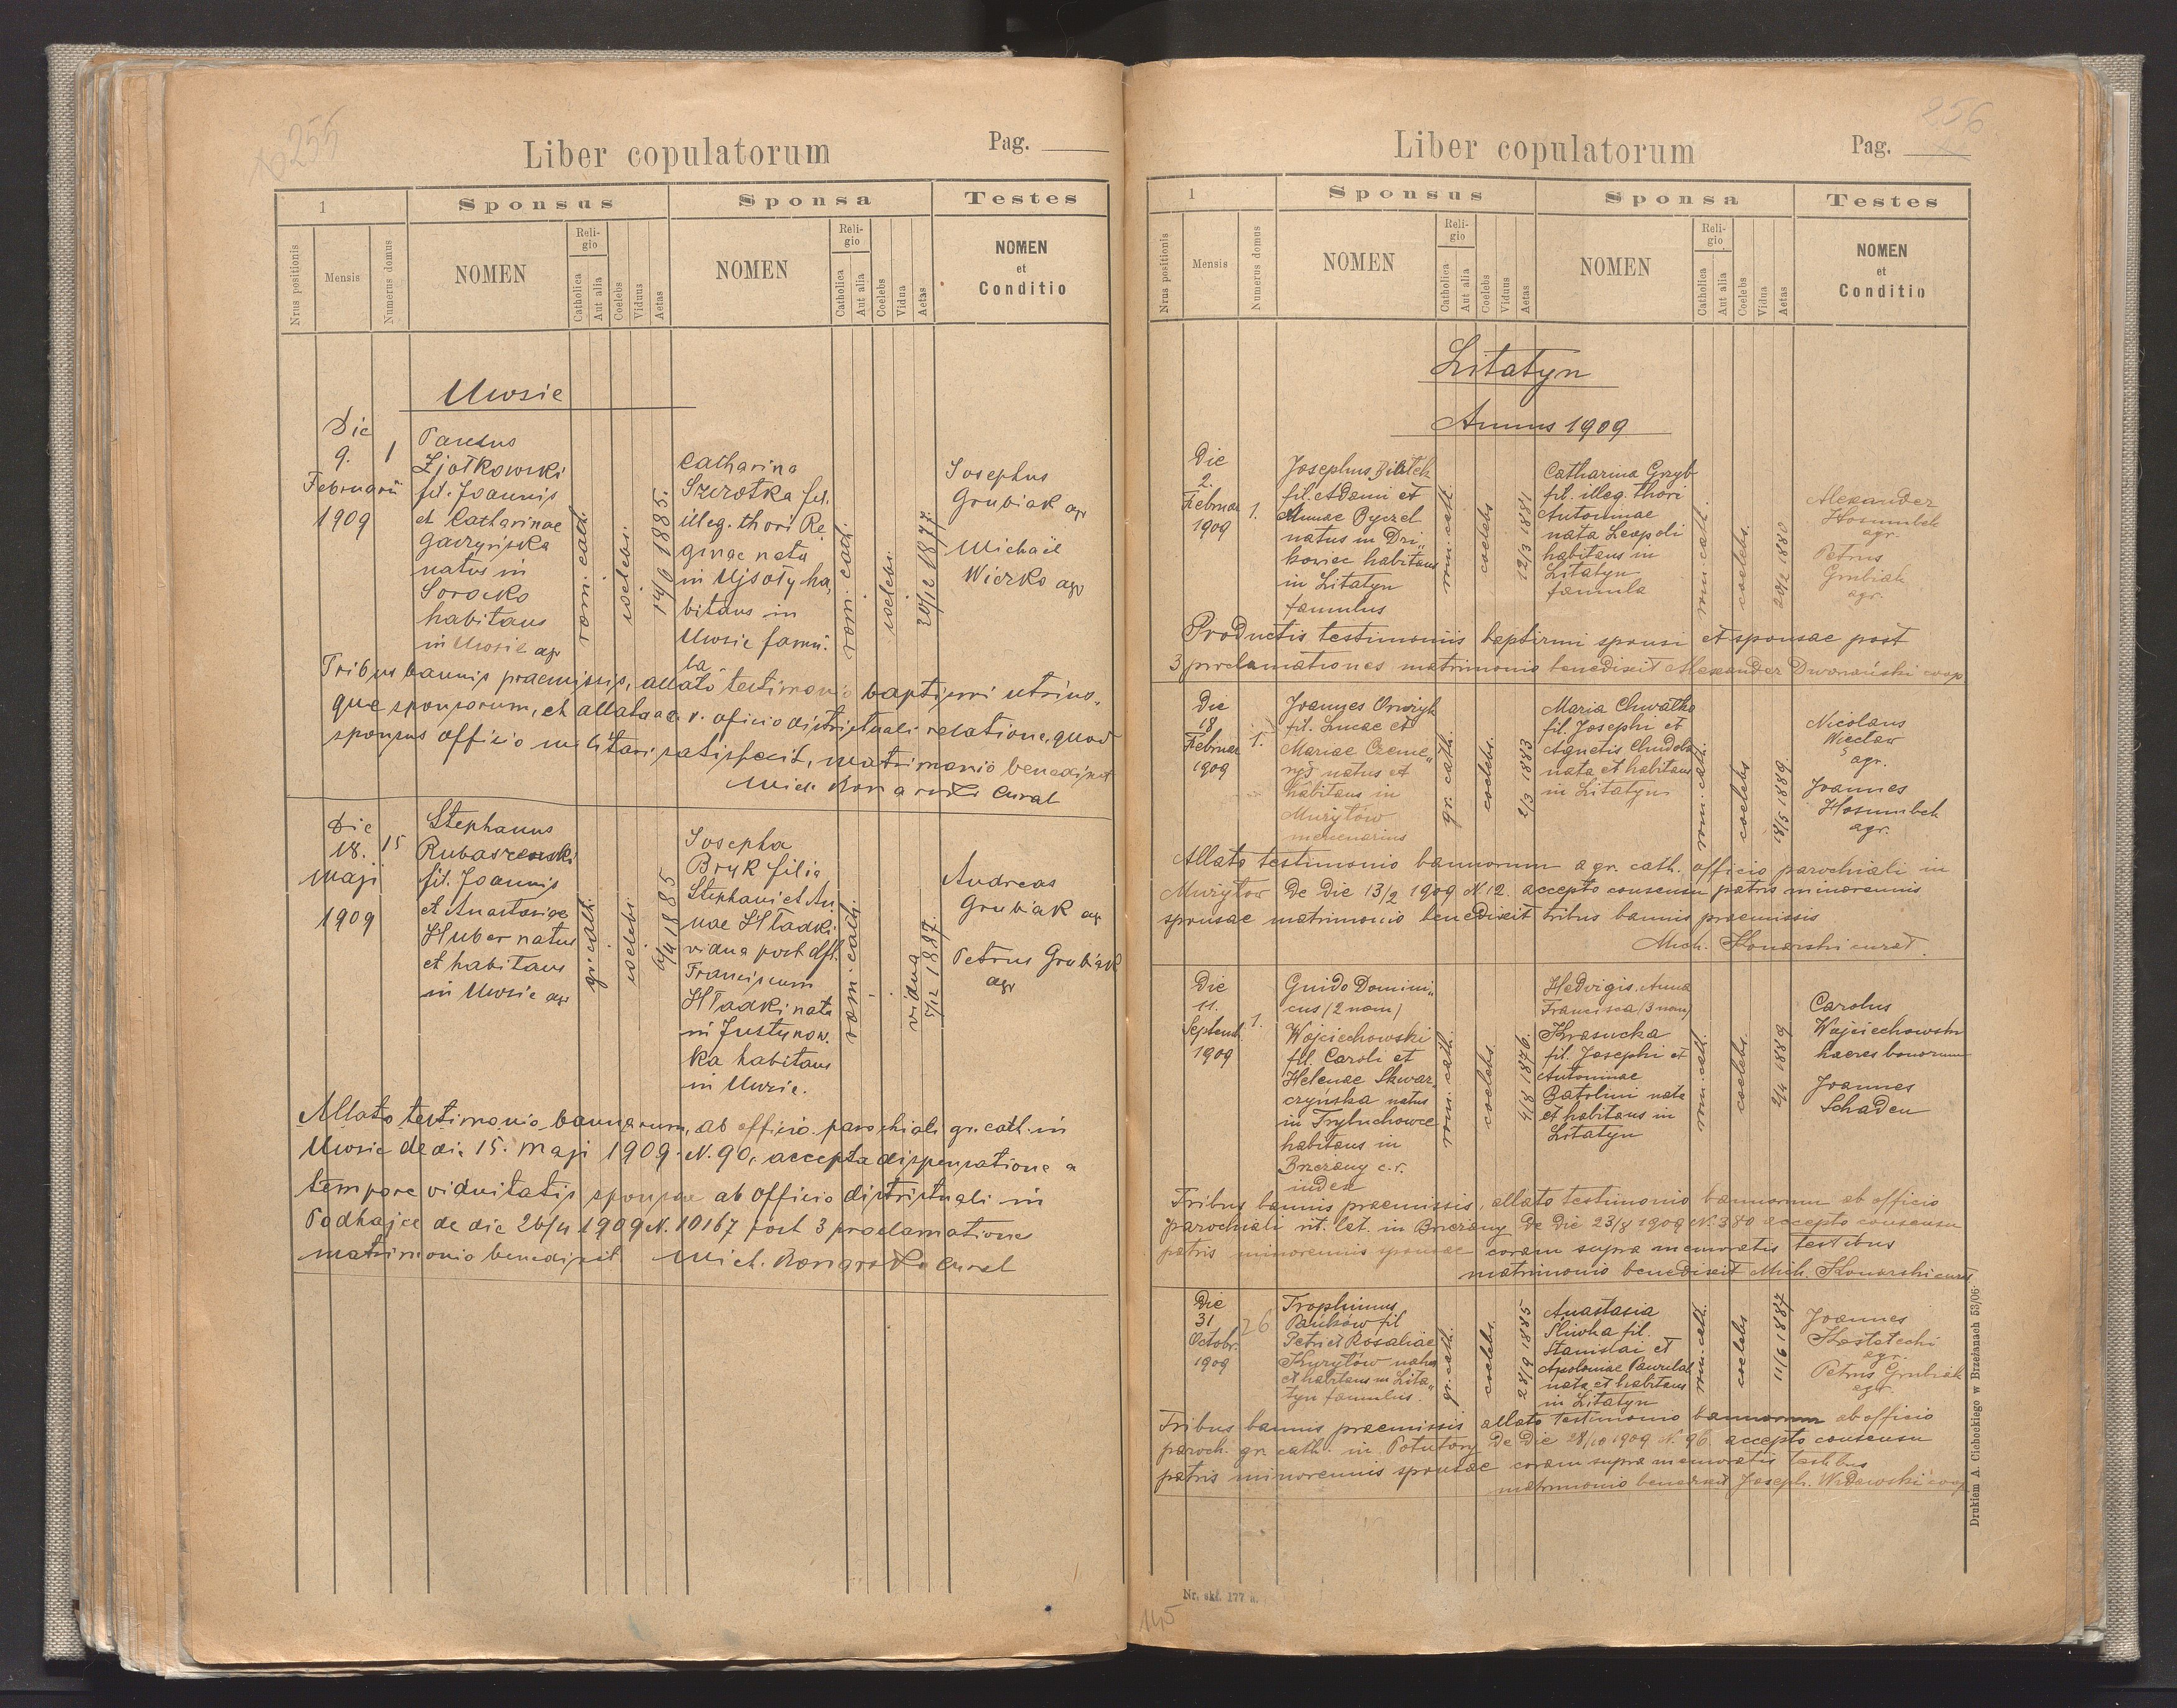 255
Liber copulatorum
Pag.
1
Sponsus
Sponsa
Testes
Nrus positionis
Mensis
Numerus domus
NOMEN
Religio
Catholica
Aut alia
Coelebs
Viduus
Aetas
NOMEN
Religio
Catholica
Aut alia
Coelebs
Vidua
Aetas
NOMEN
et
Conditio
Uwsie
Die
9.
Februarii
1909
1
Ziołkowski
fil. Joannis
et Catharinae
natus in
Sorocko
habitans
in Uwsie agr
rom. cath.
coelebs.
14/9 1885.
Catharina
Szerotka fil.
illeg. thori Re
ginae nata
in Ujsoły ha,
bitans in
Uwsie famu.
la
rom. cath.
coelebs.
20/12 1877.
Josephus
Grubiak agr
Michaël
Wierko agr
Tribus bannis praemissis, allato testimonio baptismi utrius-
que sponsorum, et allata a c. r. oficio districtuali relatione, quod
sponsus officio militari satisfecit, matrimonio benedixit
Mich. Konarski Curat
Die
18.
Maji
1909
15
Stephanus
Rubaszewski
fil. Joannis
et Anastasiae
Huber natus
et habitans
in Uwsie agr
gr. cath.
coelebs
6/4 1885
Josepha
Bryk filia
Stephani et An
nae Hładki
vidua post dft.
Franciscum
Hładki nata
in Justynow.
ka habitans
in Uwsie.
rom. cath.
vidua
5/12 1887.
Andreas
Grubiak agr
Petrus Grubiak
agr
Allato testimonio bannorum, ab officio parochiali gr. cath. in
Uwsie de die 15. Maji 1909. N. 90, accepta dispensatione a
tempore viduitatis sponsae ab officio districtuali in
Podhajce de die 26/4 1909 N. 10167 post 3 proclamationes
matrimonio benedixit Mich. Konarski Curat
256
Liber copulatorum
Pag.
1
Sponsus
Sponsa
Testes
Nrus positionis
Mensis
Numerus domus
NOMEN
Religio
Catholica
Aut alia
Coelebs
Viduus
Aetas
NOMEN
Religio
Catholica
Aut alia
Coelebs
Vidua
Aetas
NOMEN
et
Conditio
Litatyn
Annus 1909
Die
2.
Februar
1909
1.
Josephus
fil. Adami et
Annae Byczel
natus in Dri„
kowiec habitans
in Litatyn
famulus
rom. cath.
coelebs
12/3 1881
Catharina Grzyb
fil. illeg. thori
Antoninae
nata Leopoli
habitans in
Litatyn
famula
rom. cath.
coelebs.
20/2 1880
Alexander
Hosumbek
agr.
Petrus
Grubiak
agr.
Productis testimoniis baptismi sponsi et sponsae post
3 proclamationes matrimonio benedixit Alexander Dworzański coop
Die
18
Februar
1909
1.
Joannes
fil. Lucae et
Mariae Czeme„
rys natus et
habitans in
Murytów
mercenarius
gr. cath.
coelebs.
2/3 1883
Maria Chwałka
fil. Josephi et
Agnetis Chudoba
nata et habitans
in Litatyn
rom. cath.
coelebs
18/5 1889
Nicolaus
Więcław
agr.
Joannes
Hosumbek
agr.
Allato testimonio bannorum a gr. cath. officio parochiali in
Murytów de die 13/2 1909 N. 12. accepto consensu patris minorennis
sponsae matrimonio benedixit tribus bannis praemissis
Mich. Konarski curat.
Die
11.
Septemb.
1909
1.
Guido Domini„
cus (2 nom)
Wojciechowski
fil. Caroli et
Helenae Skwar„
czyńska natus
in Trybuchowce
habitans in
Brzeżany c. r.
index
rom. cath.
coelebs.
4/8 1876.
Hedvigis Anna
Francisca (3 nom)
Krasucka
fil. Josephi et
Antoninae
Batolini nata
et habitans in
Litatyn
rom. cath.
coelebs.
2/4 1889
Carolus
Wojciechowski
haeres bonorum
Joannes
Schaden
Tribus bannis praemissis, allato testimonio bannorum ab officio
parochiali rit. lat. in Brzeżany de die 23/8 1909 N. 380 accepto consensu
patris minorennis sponsae coram supra memoratis testibus
matrimonio benedixit Mich. Konarski curat
Die
31
Octobr.
1909
26
Trophimus
Pańków fil
Petri et Rosaliae
Kurytów natus
et habitans in Lita„
tyn famulus.
gr. cath.
coelebs.
28/9 1885
Anastasia
Śliwka fil.
Stanislai et
Apoloniae Pawulak
nata et habitans
in Litatyn
rom. cath.
coelebs
11/6 1887
Joannes
agr.
Petrus Grubiak
agr.
Tribus bannis praemissis allato testimonio bannorum ab officio
paroch. gr. cath. in Potutory de die 28/10 1909 N. 96. accepto consensu
patris minorennis sponsae coram supra memoratis testibus
matrimonio benedixit Joseph. Widawski coop
Drukiem A. Ciebockiego w Brzeżanach 53/06.
Nr. skł. 177 a.
145